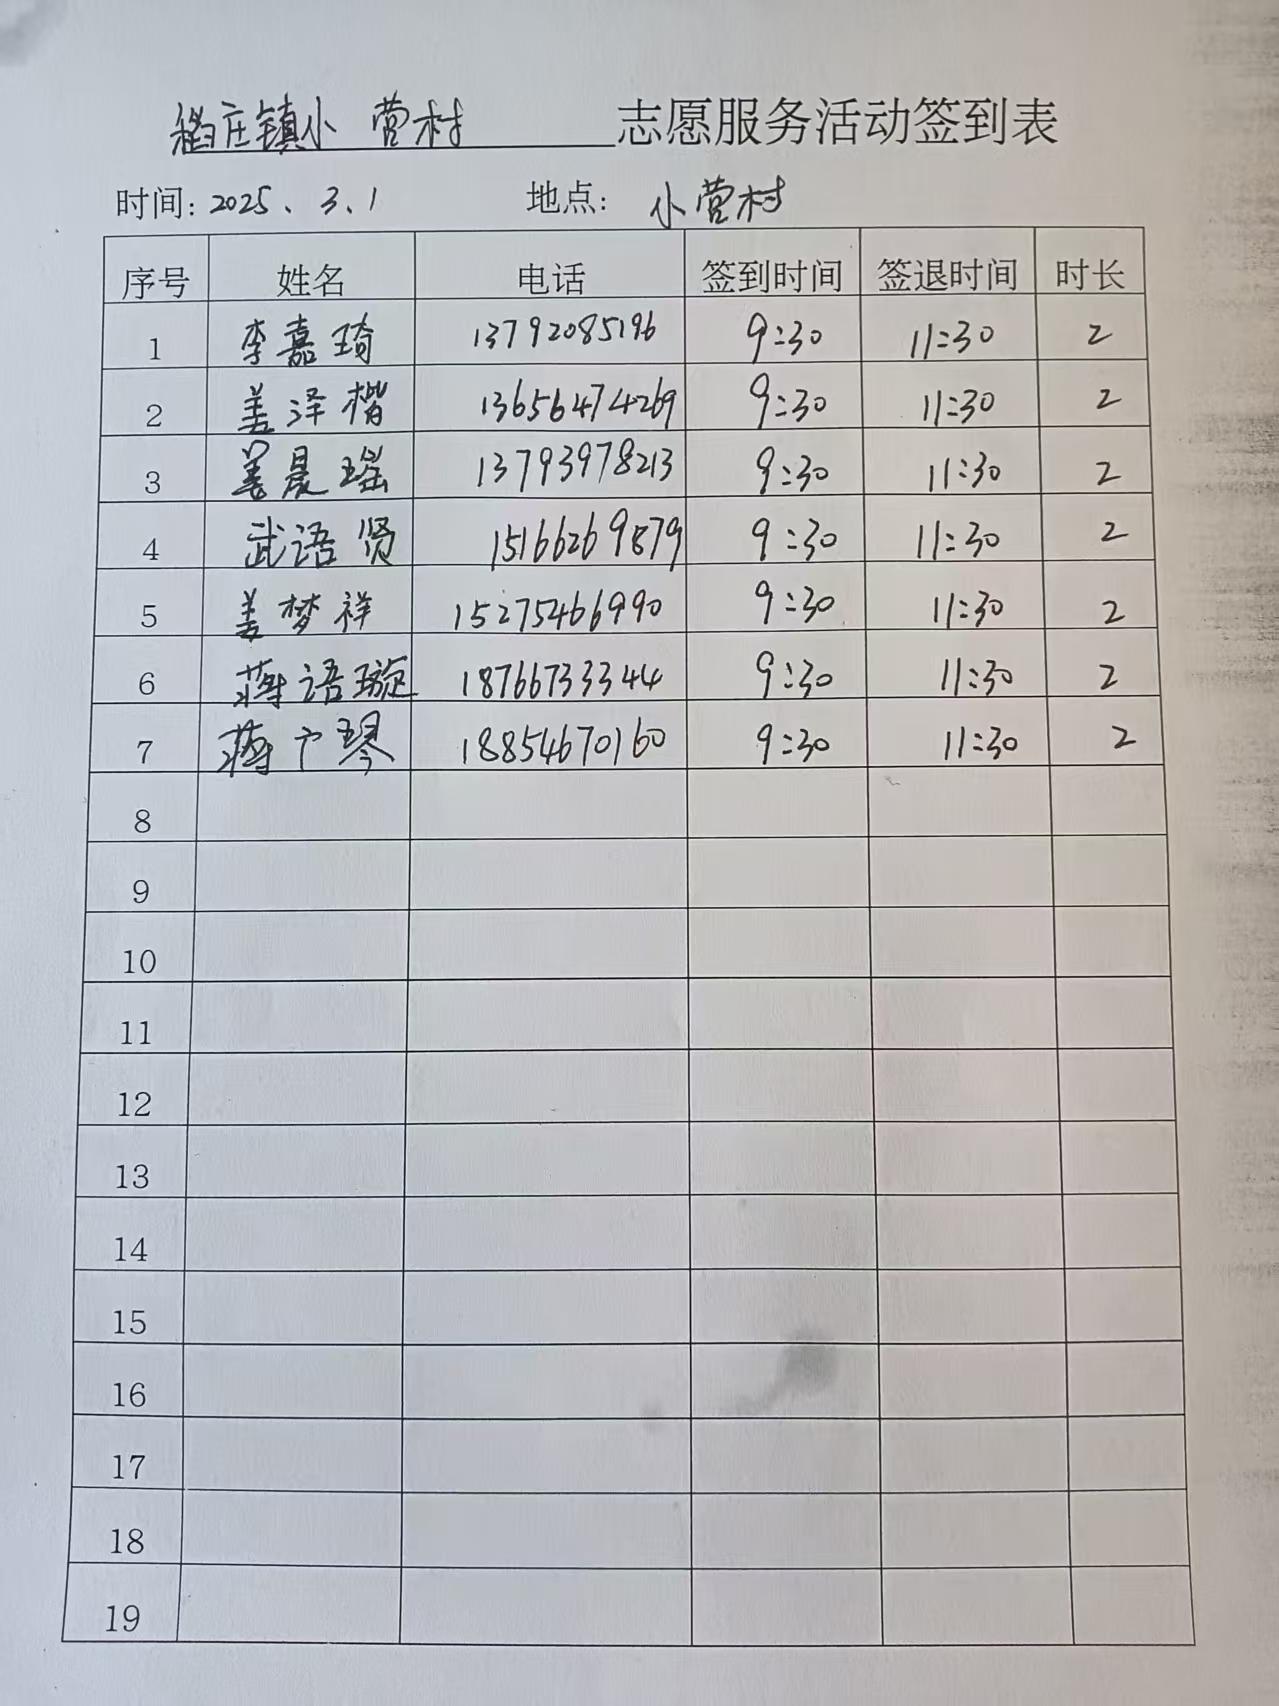 稻庄镇小营村 志愿服务活动签到表
时间: 2025、3、1 地点: 小营村
序号 姓名 电话 签到时间 签退时间 时长
1 李嘉琦 13792085196 9:30 11:30 2
2 姜泽楷 13656474269 9:30 11:30 2
3 姜晨瑶 13793978213 9:30 11:30 2
4 武语贤 15166269879 9:30 11:30 2
5 姜梦祥 15275466990 9:30 11:30 2
6 蒋语璇 18766733344 9:30 11:30 2
7 蒋广琴 18854670160 9:30 11:30 2
8
9
10
11
12
13
14
15
16
17
18
19